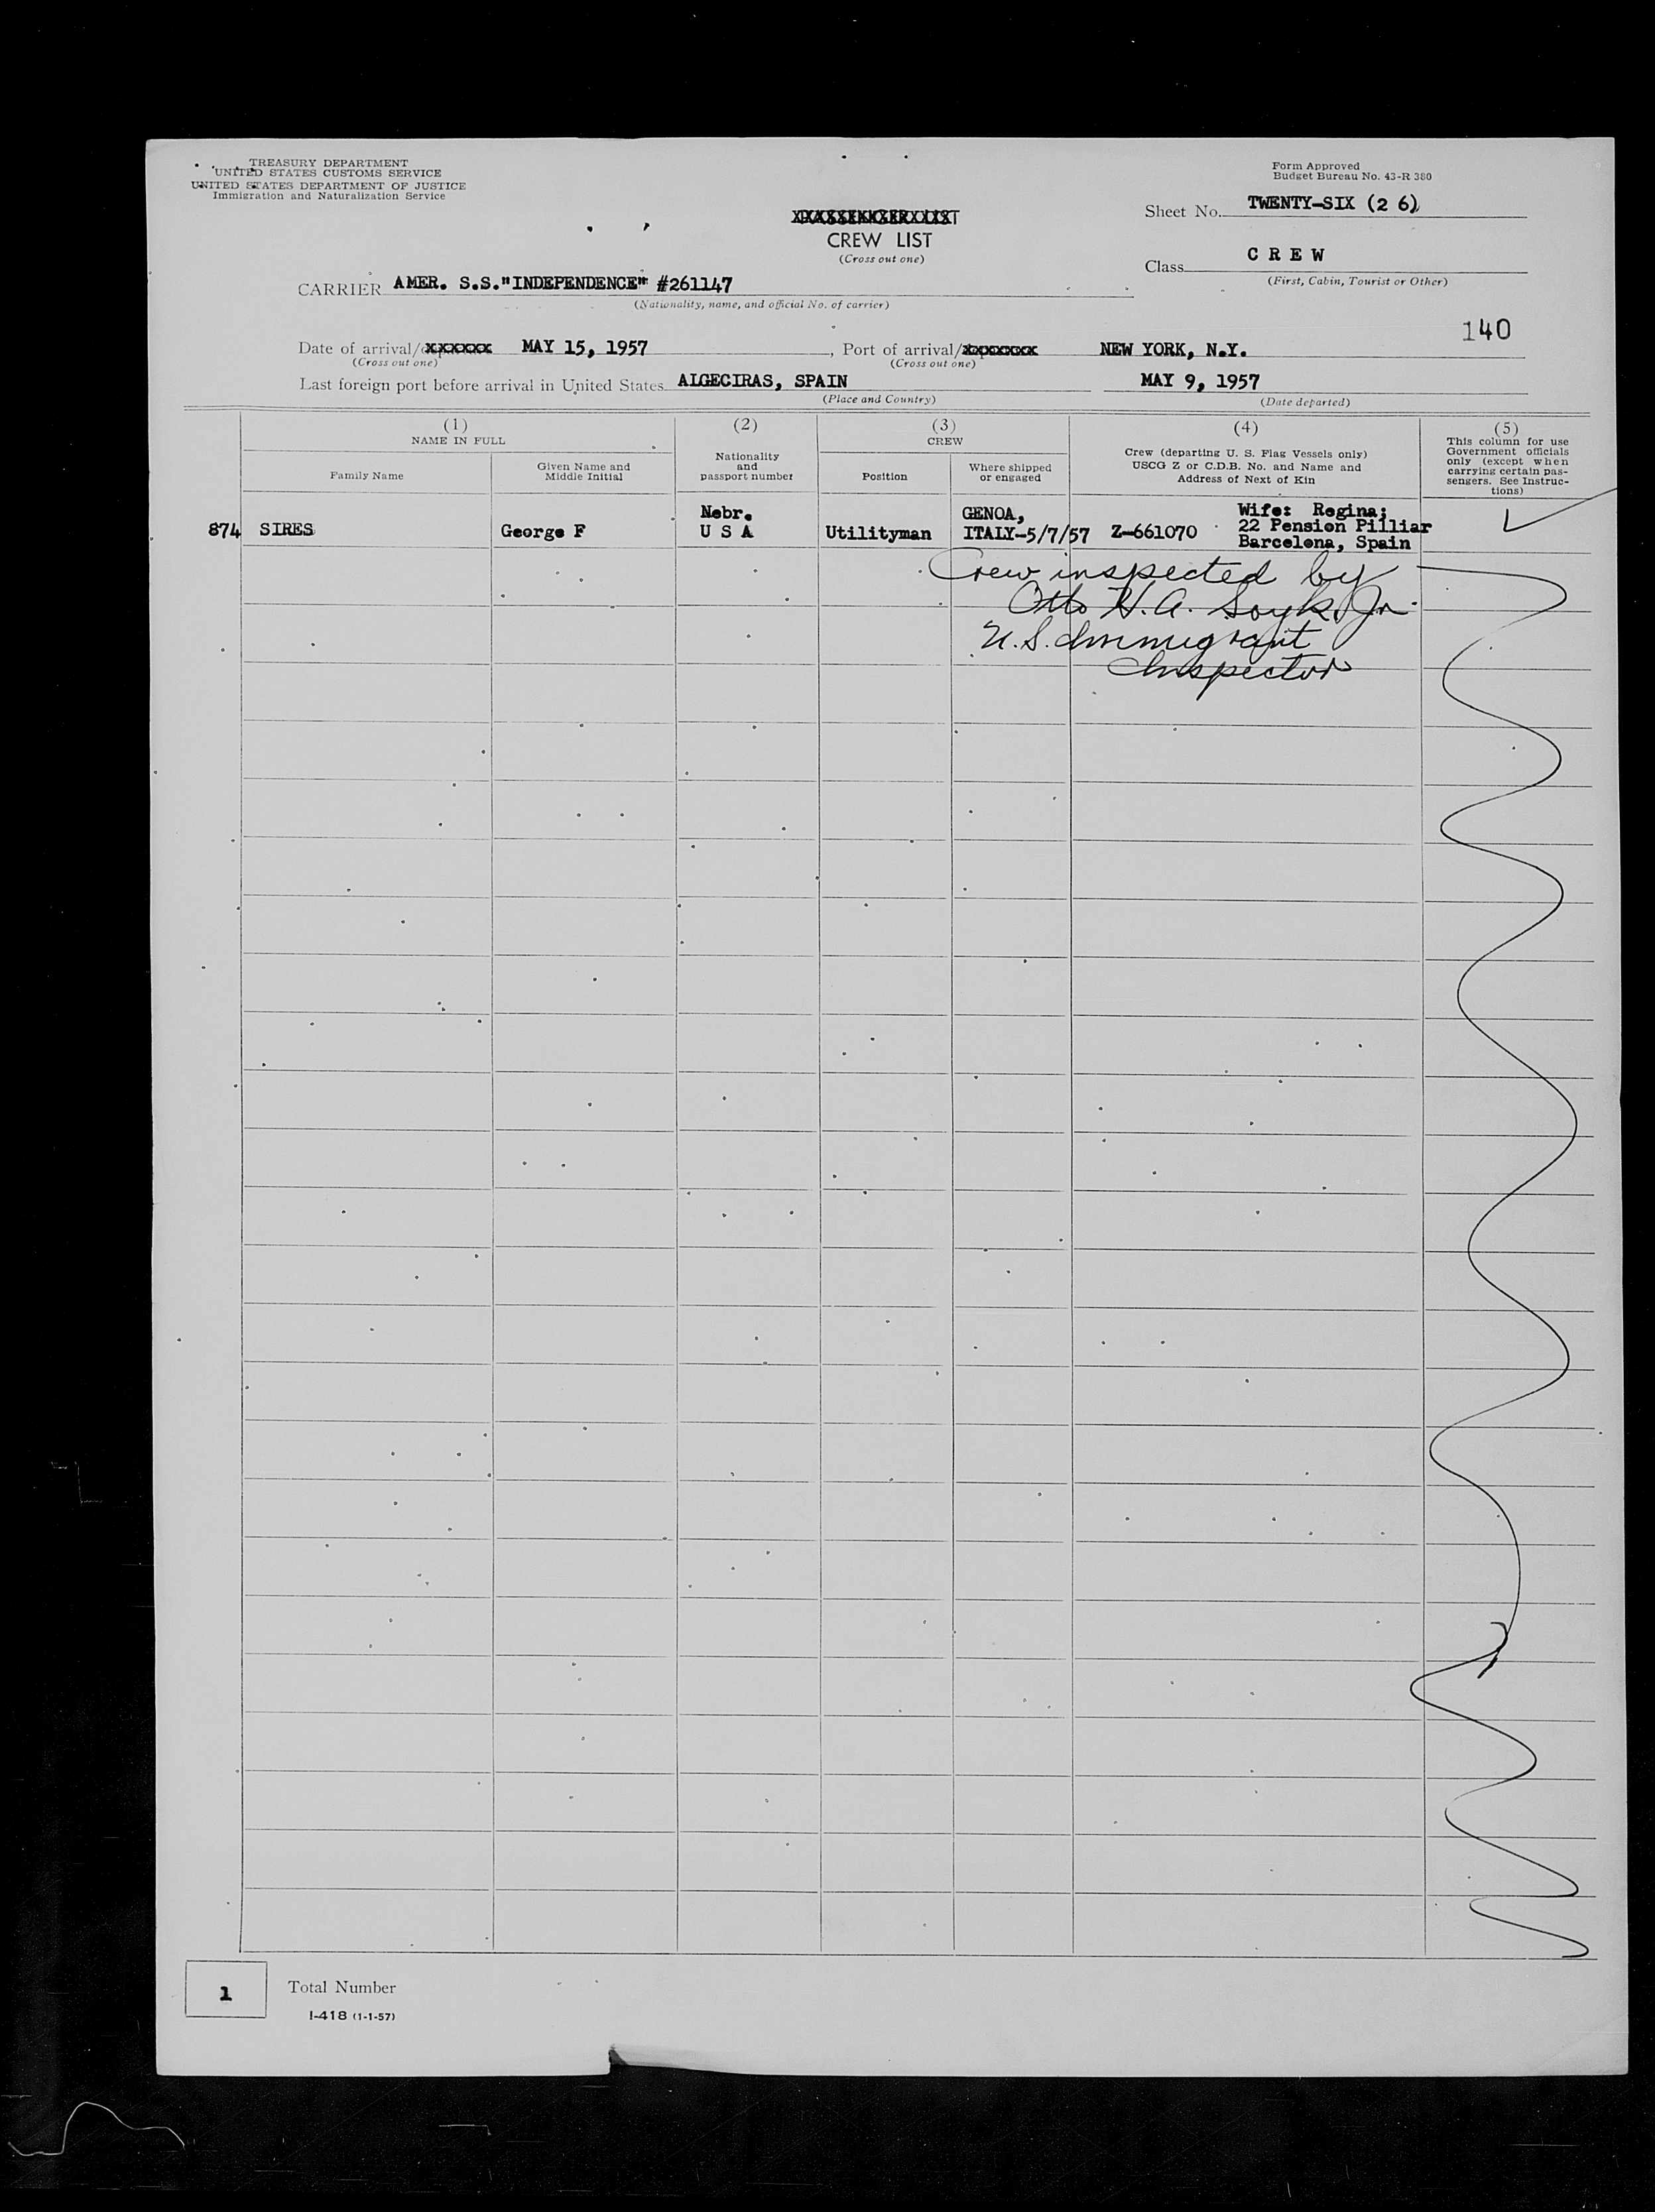 TREASURY DEPARTMENT
UNITED STATES CUSTOMS SERVICE
UNITED STATES DEPARTMENT OF JUSTICE
Immigration and Naturalization Service
Form Approved
Budget Bureau No. 43-R 380
Sheet No. TWENTY-SIX (2 6)
CREW LIST
(Cross out one)
Class C R E W
(First, Cabin, Tourist or Other)
CARRIER AMER. S.S."INDEPENDENCE" #261147
(Nationality, name, and official No. of carrier)
140
Date of arrival/ xxxxxx MAY 15, 1957, Port of arrival/ xxxxxxxx NEW YORK, N.Y.
(Cross out one) (Cross out one)
Last foreign port before arrival in United States ALGECIRAS, SPAIN MAY 9, 1957
(Place and Country) (Date departed)
(1) (2) (3) (4) (5)
NAME IN FULL
Family Name
Given Name and
Middle Initial
Nationality
and
passport number
CREW
Position
Where shipped
or engaged
Crew (departing U. S. Flag Vessels only)
USCG Z or C.D.B. No. and Name and
Address of Next of Kin
This column for use
Government officials
only (except when
carrying certain pas-
sengers. See Instruc-
tions)
874 SIRES George F
Nebr.
U S A
Utilityman
GENOA,
ITALY-5/7/57
Z-661070
Wife: Regina;
22 Pension Pilliar
Barcelona, Spain
Crew inspected by
Otto H.A. Soyk, Jr.
U.S. Immigrant
Inspector
1 Total Number
I-418 (1-1-57)